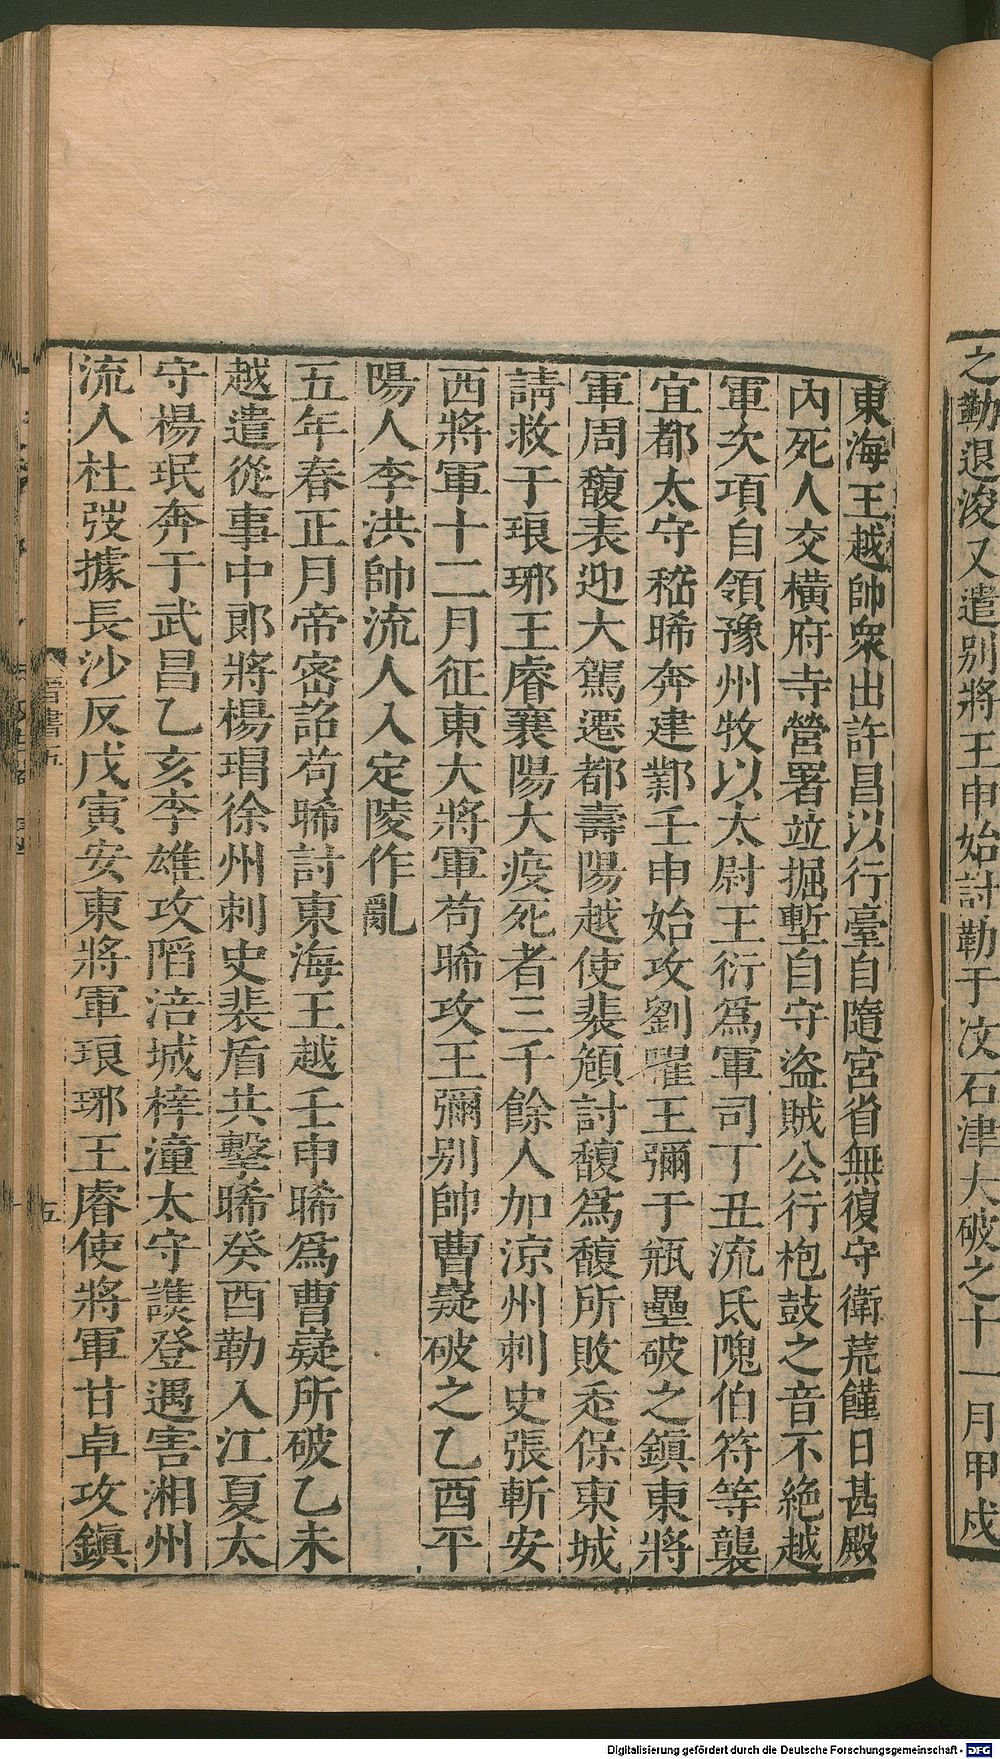 之勒退浚又遣別將王申始討勒于汶石津大破之十一月甲戌
東海王越帥衆出許昌以行臺自隨宮省無復守衛荒饉日甚殿
內死人交橫府寺營署竝掘塹自守盜賊公行枹鼓之音不絕越
軍次項自領豫州牧以太尉王衍爲軍司丁丑流氐隗伯符等襲
宜都太守嵇晞奔建鄴壬申始攻劉曜王彌于瓶壘破之鎭東將
軍周馥表迎大駕遷都壽陽越使裴頠討馥爲馥所敗走保東城
請救于琅琊王睿襄陽大疫死者三千餘人加涼州刺史張斬安
西將軍十二月征東大將軍苟晞攻王彌别帥曹嶷破之乙酉平
陽人李洪帥流人入定陵作亂
五年春正月帝密詔苟晞討東海王越壬申晞爲曹嶷所破乙未
越遣從事中郎將楊瑁徐州刺史裴盾共擊晞癸酉勒入江夏太
守楊珉奔于武昌乙亥李雄攻䧟涪城梓潼太守譙登遇害湘州
流人杜弢據長沙反戊寅安東將軍琅琊王睿使將軍甘卓攻鎭
晉書五
五
Digitalisierung gefördert durch die Deutsche Forschungsgemeinschaft - DFG